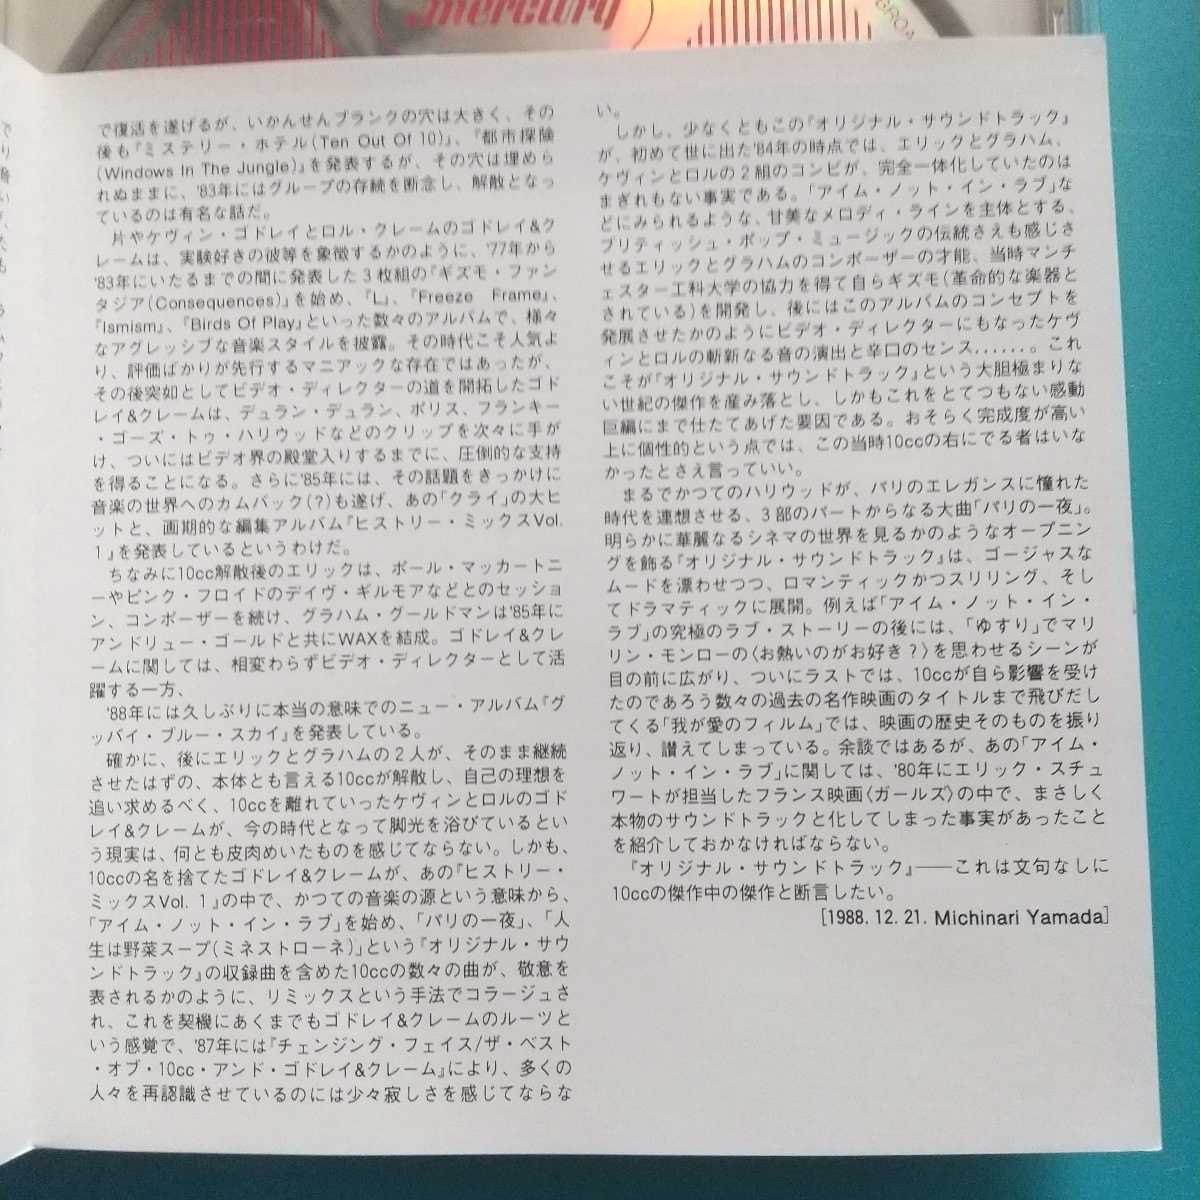 mercury
で復活を遂げるが、いかんせんブランクの穴は大きく、その
後も『ミステリー・ホテル(Ten Out Of 10)』、『都市探険
(Windows In The Jungle)』を発表するが、その穴は埋めら
れぬままに、'83年にはグループの存続を断念し、解散となっ
ているのは有名な話だ。
片やケヴィン・ゴドレイとロル・クレームのゴドレイ&ク
レームは、実験好きの彼等を象徴するかのように、'77年から
'83年にいたるまでの間に発表した3枚組の『ギズモ・ファン
タジア(Consequences)』を始め、『L』、『Freeze Frame』、
『Ismism』、『Birds Of Play』といった数々のアルバムで、様々
なアグレッシブな音楽スタイルを披露。その時代こそ人気よ
り、評価ばかりが先行するマニアックな存在ではあったが、
その後突如としてビデオ・ディレクターの道を開拓したゴド
レイ&クレームは、デュラン・デュラン、ポリス、フランキー
・ゴーズ・トゥ・ハリウッドなどのクリップを次々に手が
け、ついにはビデオ界の殿堂入りするまでに、圧倒的な支持
を得ることになる。さらに'85年には、その話題をきっかけに
音楽の世界へのカムバック(?)も遂げ、あの「クライ」の大ヒ
ットと、画期的な編集アルバム『ヒストリー・ミックスVol.
1』を発表しているというわけだ。
ちなみに10cc解散後のエリックは、ポール・マッカートニ
ーやピンク・フロイドのデイヴ・ギルモアなどとのセッショ
ン、コンポーザーを続け、グラハム・グールドマンは'85年に
アンドリュー・ゴールドと共にWAXを結成。ゴドレイ&クレ
ームに関しては、相変わらずビデオ・ディレクターとして活
躍する一方、
'88年には久しぶりに本当の意味でのニュー・アルバム『グ
ッバイ・ブルー・スカイ』を発表している。
確かに、後にエリックとグラハムの2人が、そのまま継続
させたはずの、本体とも言える10ccが解散し、自己の理想を
追い求めるべく、10ccを離れていったケヴィンとロルのゴド
レイ&クレームが、今の時代となって脚光を浴びているとい
う現実は、何とも皮肉めいたものを感じてならない。しかも、
10ccの名を捨てたゴドレイ&クレームが、あの『ヒストリー・
ミックスVol. 1』の中で、かつての音楽の源という意味から、
「アイム・ノット・イン・ラブ」を始め、「パリの一夜」、「人
生は野菜スープ(ミネストローネ)」という『オリジナル・サウ
ンドトラック』の収録曲を含めた10ccの数々の曲が、敬意を
表されるかのように、リミックスという手法でコラージュさ
れ、これを契機にあくまでもゴドレイ&クレームのルーツと
いう感覚で、'87年には『チェンジング・フェイス/ザ・ベスト
・オブ・10cc・アンド・ゴドレイ&クレーム』により、多くの
人々を再認識させているのには少々寂しさを感じてならな
い。
しかし、少なくともこの『オリジナル・サウンドトラック』
が、初めて世に出た'84年の時点では、エリックとグラハム、
ケヴィンとロルの2組のコンビが、完全一体化していたのは
まぎれもない事実である。「アイム・ノット・イン・ラブ」な
どにみられるような、甘美なメロディ・ラインを主体とする、
ブリティッシュ・ポップ・ミュージックの伝統さえも感じさ
せるエリックとグラハムのコンポーザーの才能、当時マンチ
ェスター工科大学の協力を得て自らギズモ(革命的な楽器と
されている)を開発し、後にはこのアルバムのコンセプトを
発展させたかのようにビデオ・ディレクターにもなったケヴ
ィンとロルの斬新なる音の演出と辛口のセンス......。これ
こそが『オリジナル・サウンドトラック』という大胆極まりな
い世紀の傑作を産み落とし、しかもこれをとてつもない感動
巨編にまで仕たてあげた要因である。おそらく完成度が高い
上に個性的という点では、この当時10ccの右にでる者はいな
かったとさえ言っていい。
まるでかつてのハリウッドが、パリのエレガンスに憧れた
時代を連想させる、3部のパートからなる大曲「パリの一夜」。
明らかに華麗なるシネマの世界を見るかのようなオープニン
グを飾る『オリジナル・サウンドトラック』は、ゴージャスな
ムードを漂わせつつ、ロマンティックかつスリリング、そし
てドラマティックに展開。例えば「アイム・ノット・イン・
ラブ」の究極のラブ・ストーリーの後には、「ゆすり」でマリ
リン・モンローの〈お熱いのがお好き?〉を思わせるシーンが
目の前に広がり、ついにラストでは、10ccが自ら影響を受け
たのであろう数々の過去の名作映画のタイトルまで飛びだし
てくる「我が愛のフィルム」では、映画の歴史そのものを振り
返り、讃えてしまっている。余談ではあるが、あの「アイム・
ノット・イン・ラブ」に関しては、'80年にエリック・スチュ
ワートが担当したフランス映画〈ガールズ〉の中で、まさしく
本物のサウンドトラックと化してしまった事実があったこと
を紹介しておかなければならない。
『オリジナル・サウンドトラック』——これは文句なしに
10ccの傑作中の傑作と断言したい。
[1988. 12. 21. Michinari Yamada]